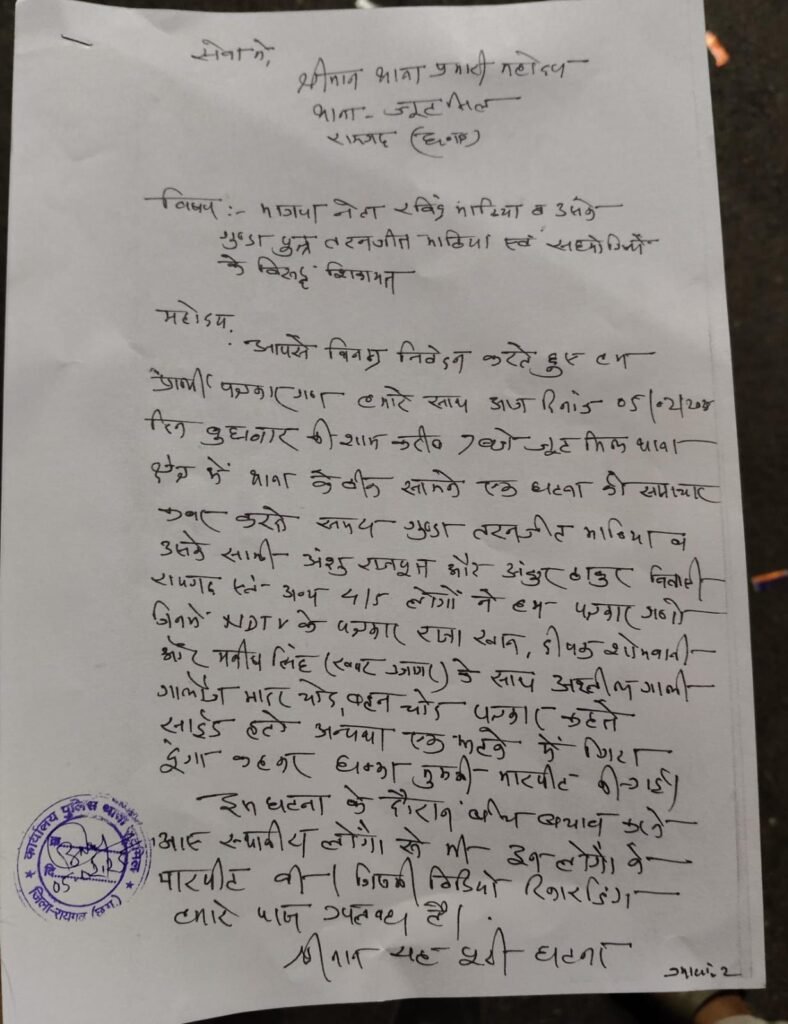 सेवा में,
श्रीमान थाना प्रभारी महोदय
थाना - जूटमिल
रायगढ़ (छ.ग.)
विषय :- भाजपा नेता रविंद्र भाटिया व उसके
गुण्डा पुत्र तरनजीत भाटिया एवं सहयोगियों
के विरूद्ध शिकायत
महोदय,
आपसे विनम्र निवेदन करते हुए हम
प्रार्थी पत्रकार गण हमारे साथ आज दिनांक 05/02/20
दिन बुधवार की शाम करीब 7 बजे जूट मिल थाना
क्षेत्र में थाना के ठीक सामने एक घटना की समाचार
कवर करते समय गुण्डा तरनजीत भाटिया व
उसके साथी अंशु राजपूत और अंकुर ठाकुर निवासी
रायगढ़ एवं अन्य 4/5 लोगों ने हम पत्रकार गणों
जिनमें NDTV के पत्रकार राजा खान, दीपक शोभवानी
और मनीष सिंह (खबर उजागर) के साथ अश्लील गाली
गालौज मादर चोद, बहन चोद पत्रकार कहते
साईड हटो अन्यथा एक झटके में गिरा
दूंगा कहकर धक्का मुक्की मारपीट की गई।
इस घटना के दौरान बीच बचाव करने
आए स्थानीय लोगों से भी इन लोगों ने
मारपीट की। जिसकी विडियो रिकार्डिंग
हमारे पास उपलब्ध है।
श्रीमान यह पूरी घटना
2
कार्यालय पुलिस थाना जूटमिल
जिला-रायगढ़ (छ.ग.)